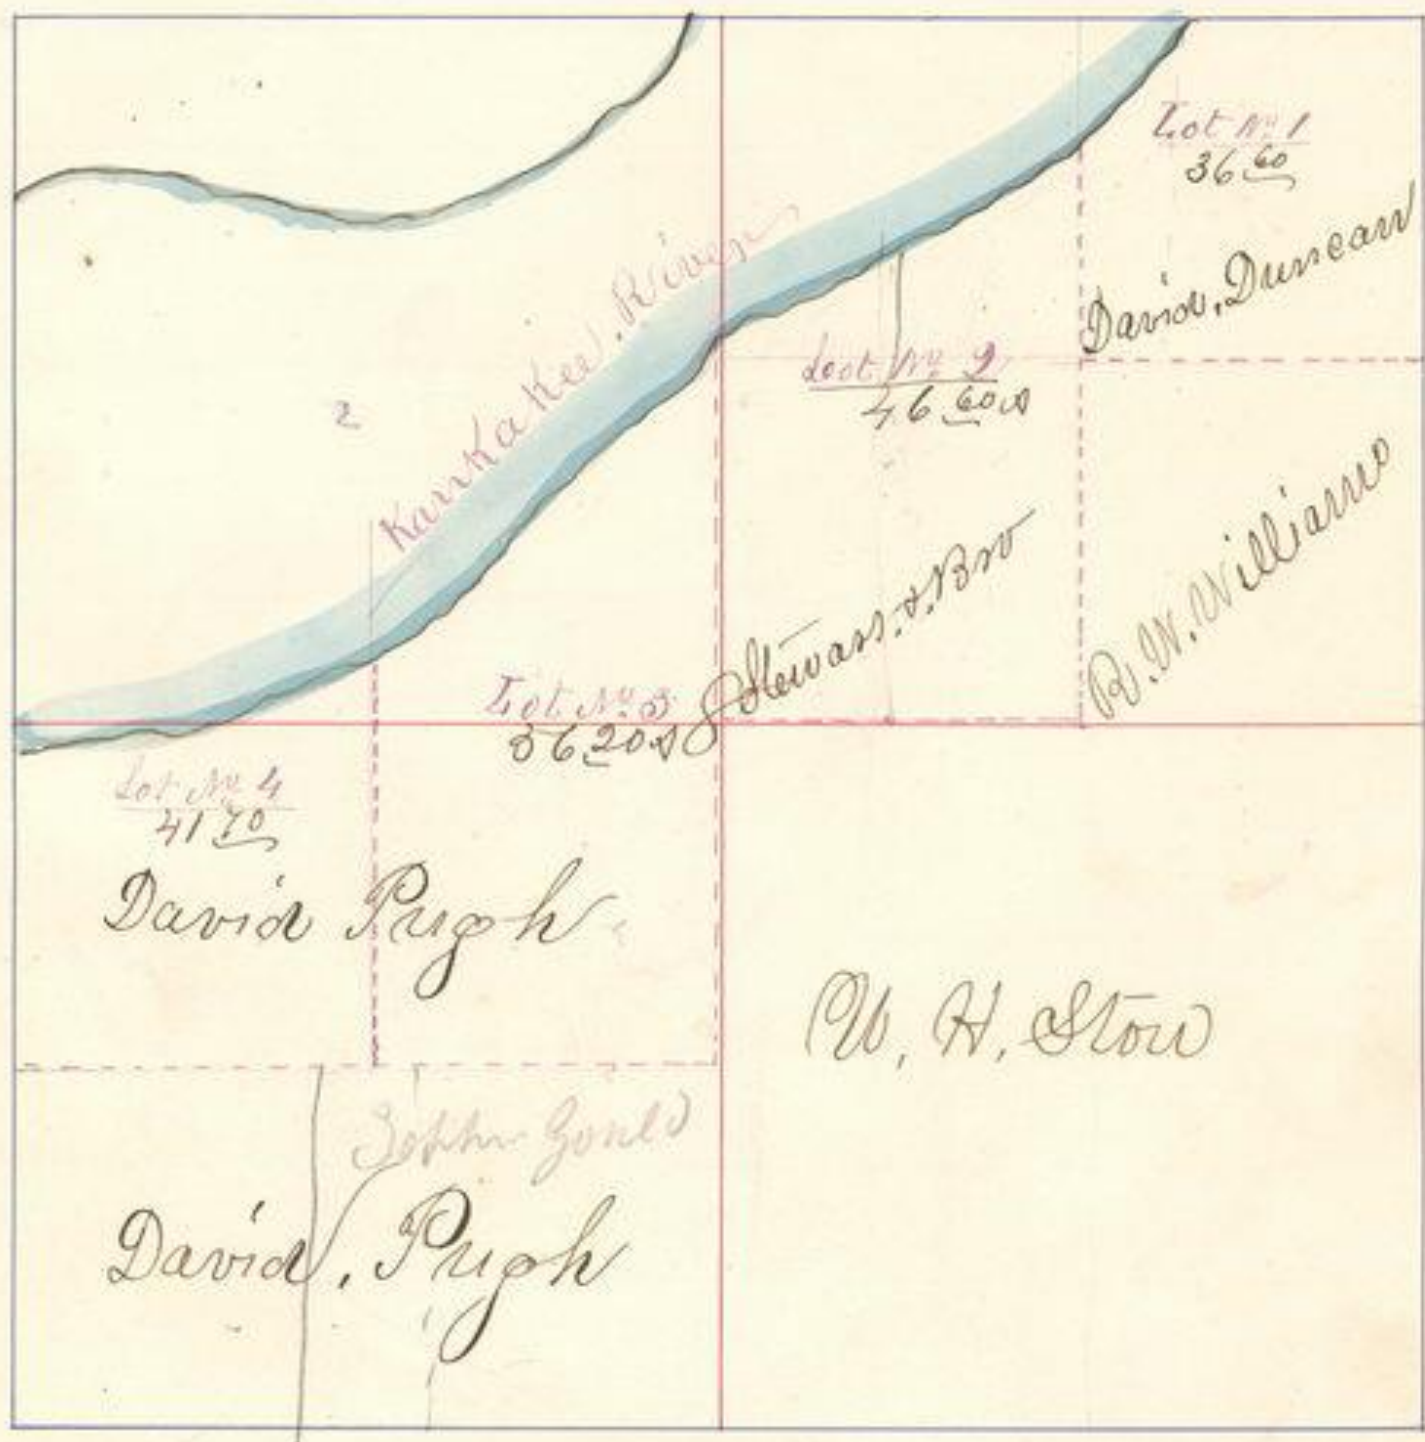 Lot No 1
36 60
David, Duncan
Kankakee, River
2
Loot No 2
46 60 A
R. W. Williams
Stewars. &. Bro
Lot No. 3
36 20 A
Lot No 4
41 70
David Pugh
W, H, Stow
Gould
David, Pugh